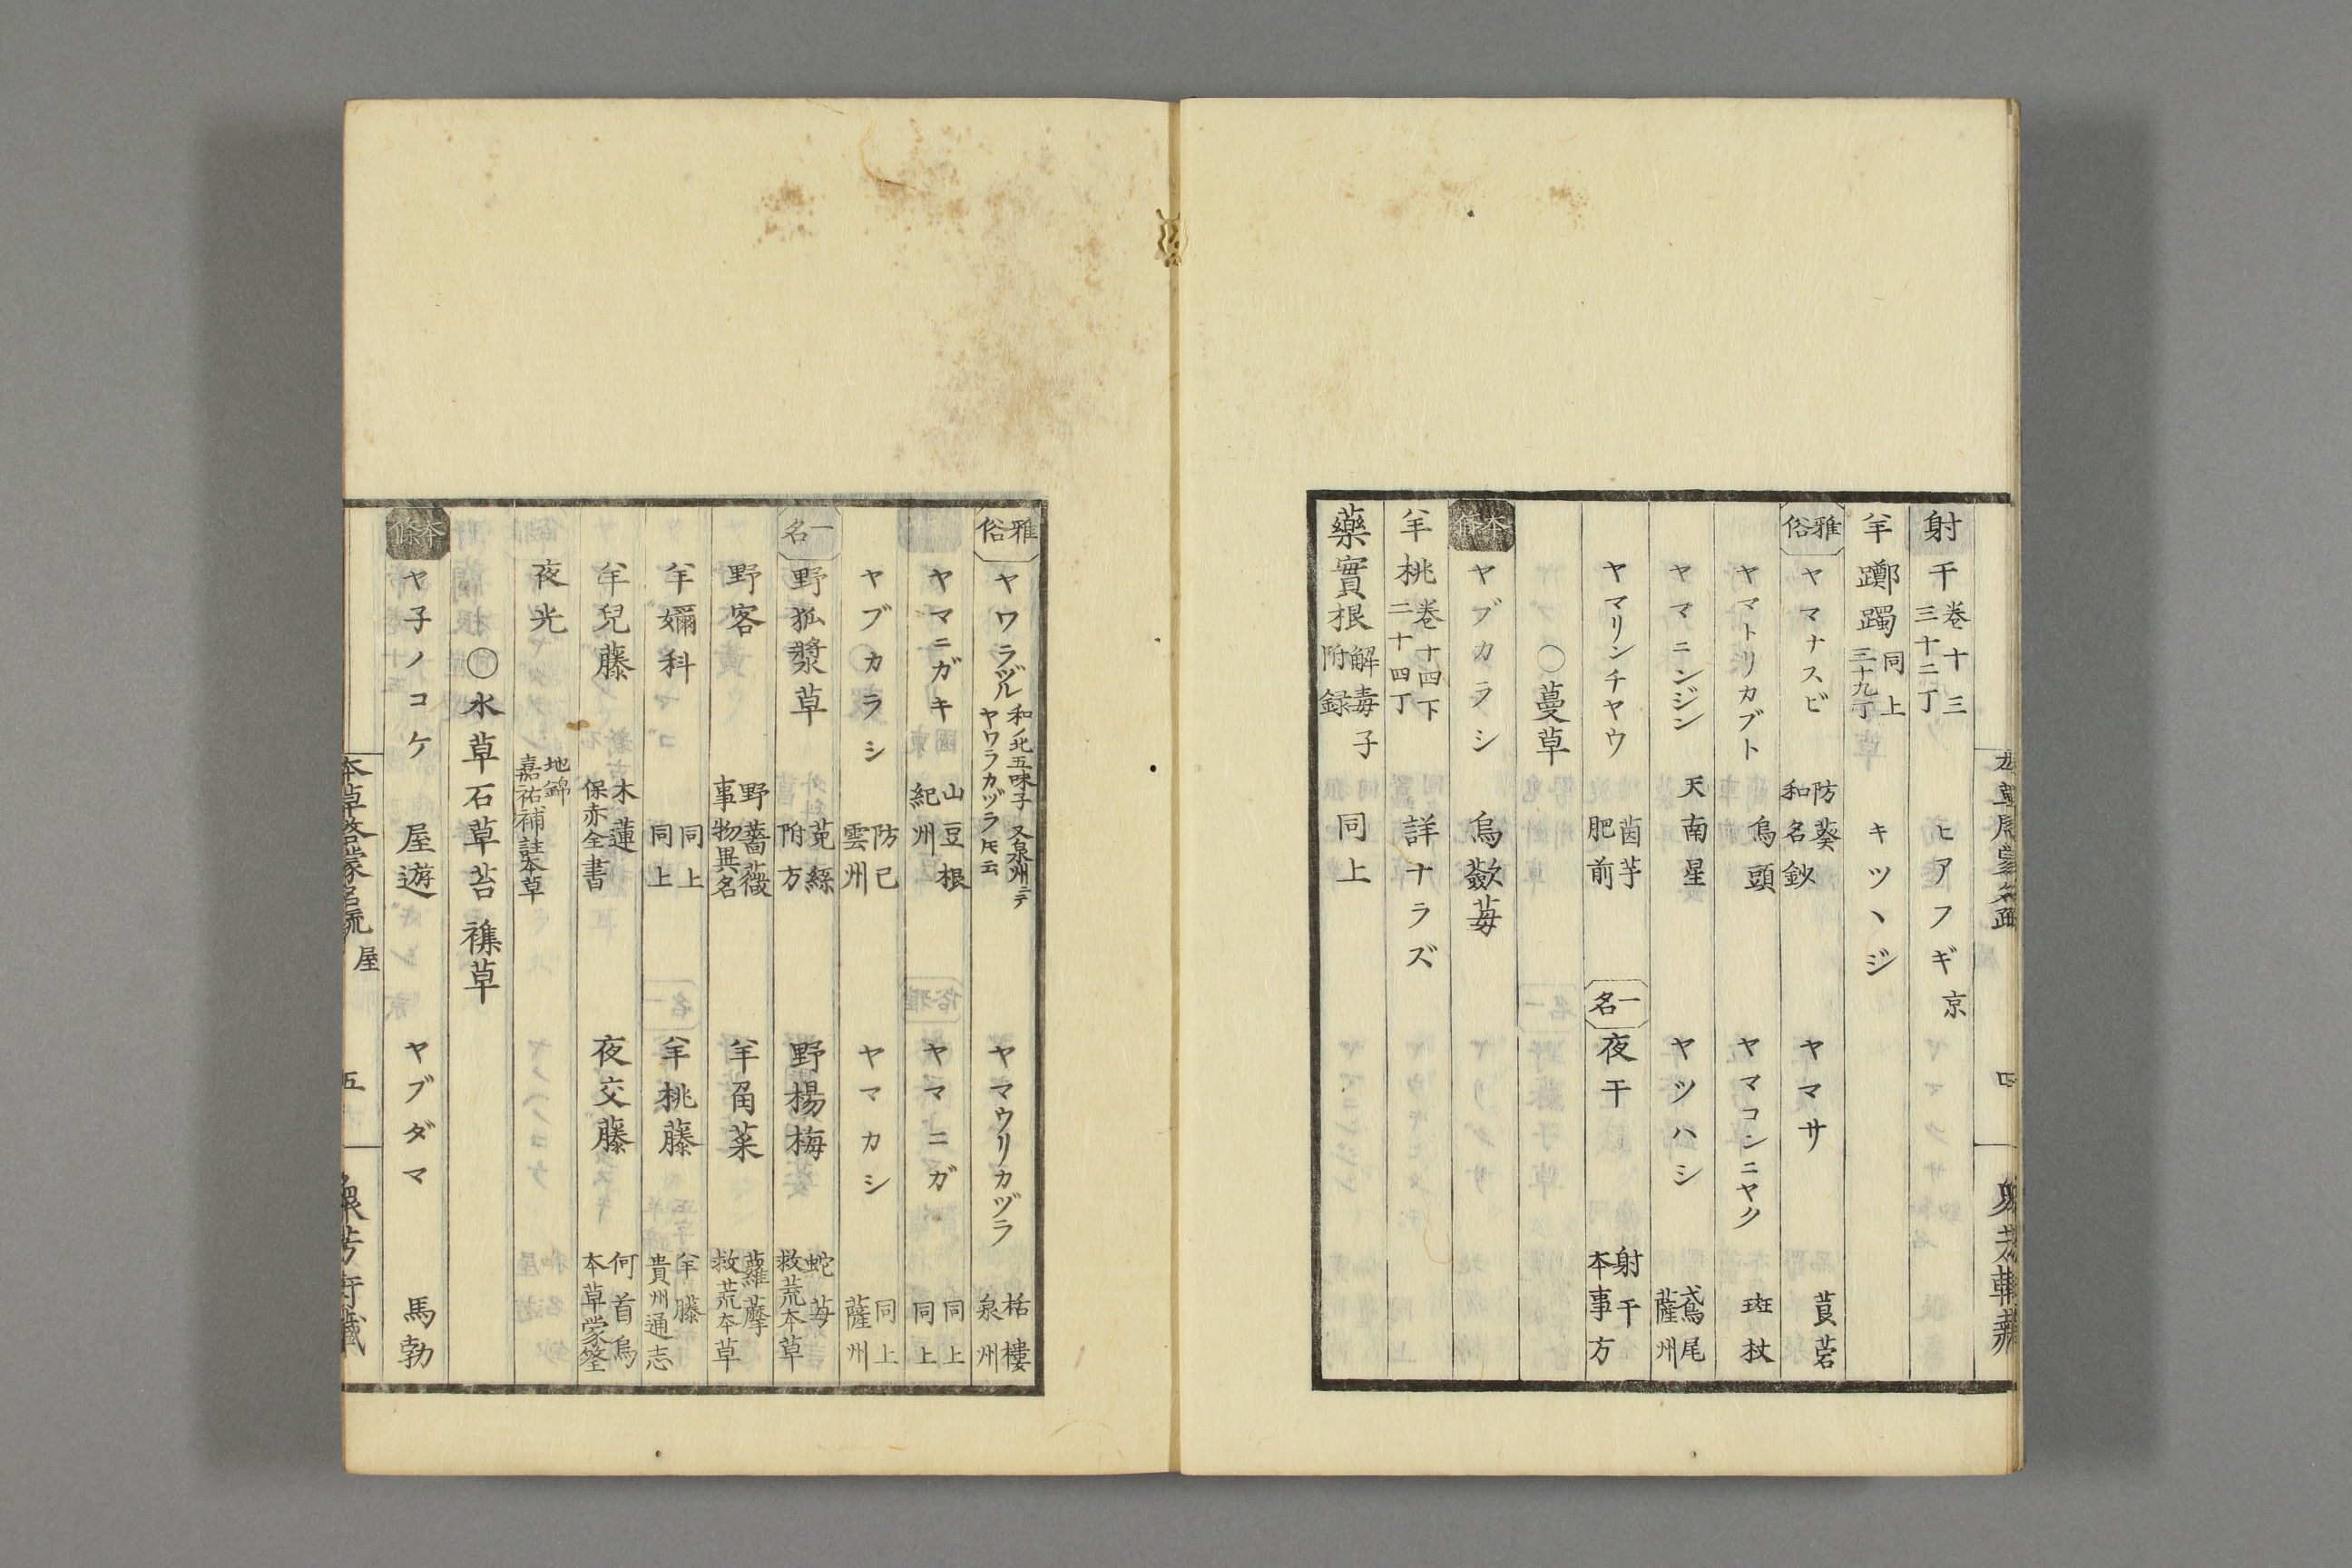 射干 巻十三 三十二丁 ヒアフギ 京
羊躑躅 同上 三十九丁 キツヽジ
雅俗 ヤマナスビ 防葵 和名鈔 ヤマサ 莨菪
ヤマトリカブト 烏頭 ヤマコンニヤク 斑杖
ヤマニンジン 天南星 ヤツハシ 鳶尾 薩州
ヤマリンチヤウ 茵芋 肥前 一名 夜干 射干 本事方
〇蔓草
本條 ヤブカラシ 烏蘞苺
羊桃 巻十四下 二十四丁 詳ナラズ
藥實根 解毒子 附録 同上
雅俗 ヤワラヅル 和ノ北五味子 又泉州ニテ ヤワラカヅラト云 ヤマウリカヅラ 栝樓 泉州
ヤマニガキ 山豆根 紀州 ヤマニガ 同上 同上
ヤブカラシ 防已 雲州 ヤマカシ 同上 薩州
一名 野狐漿草 菟絲 附方 野楊梅 蛇苺 救荒本草
野客 野薔薇 事物異名 羊角菜 蘿藦 救荒本草
羊嬭科 同上 同上 羊桃藤 羊藤 貴州通志
羊兒藤 木蓮 保赤全書 夜交藤 何首烏 本草蒙筌
夜光 地錦 嘉祐補註本草
〇水草石草苔襍草
本條 ヤ子ノコケ 屋遊 ヤブダマ 馬勃
本草啓蒙名疏 屋 五